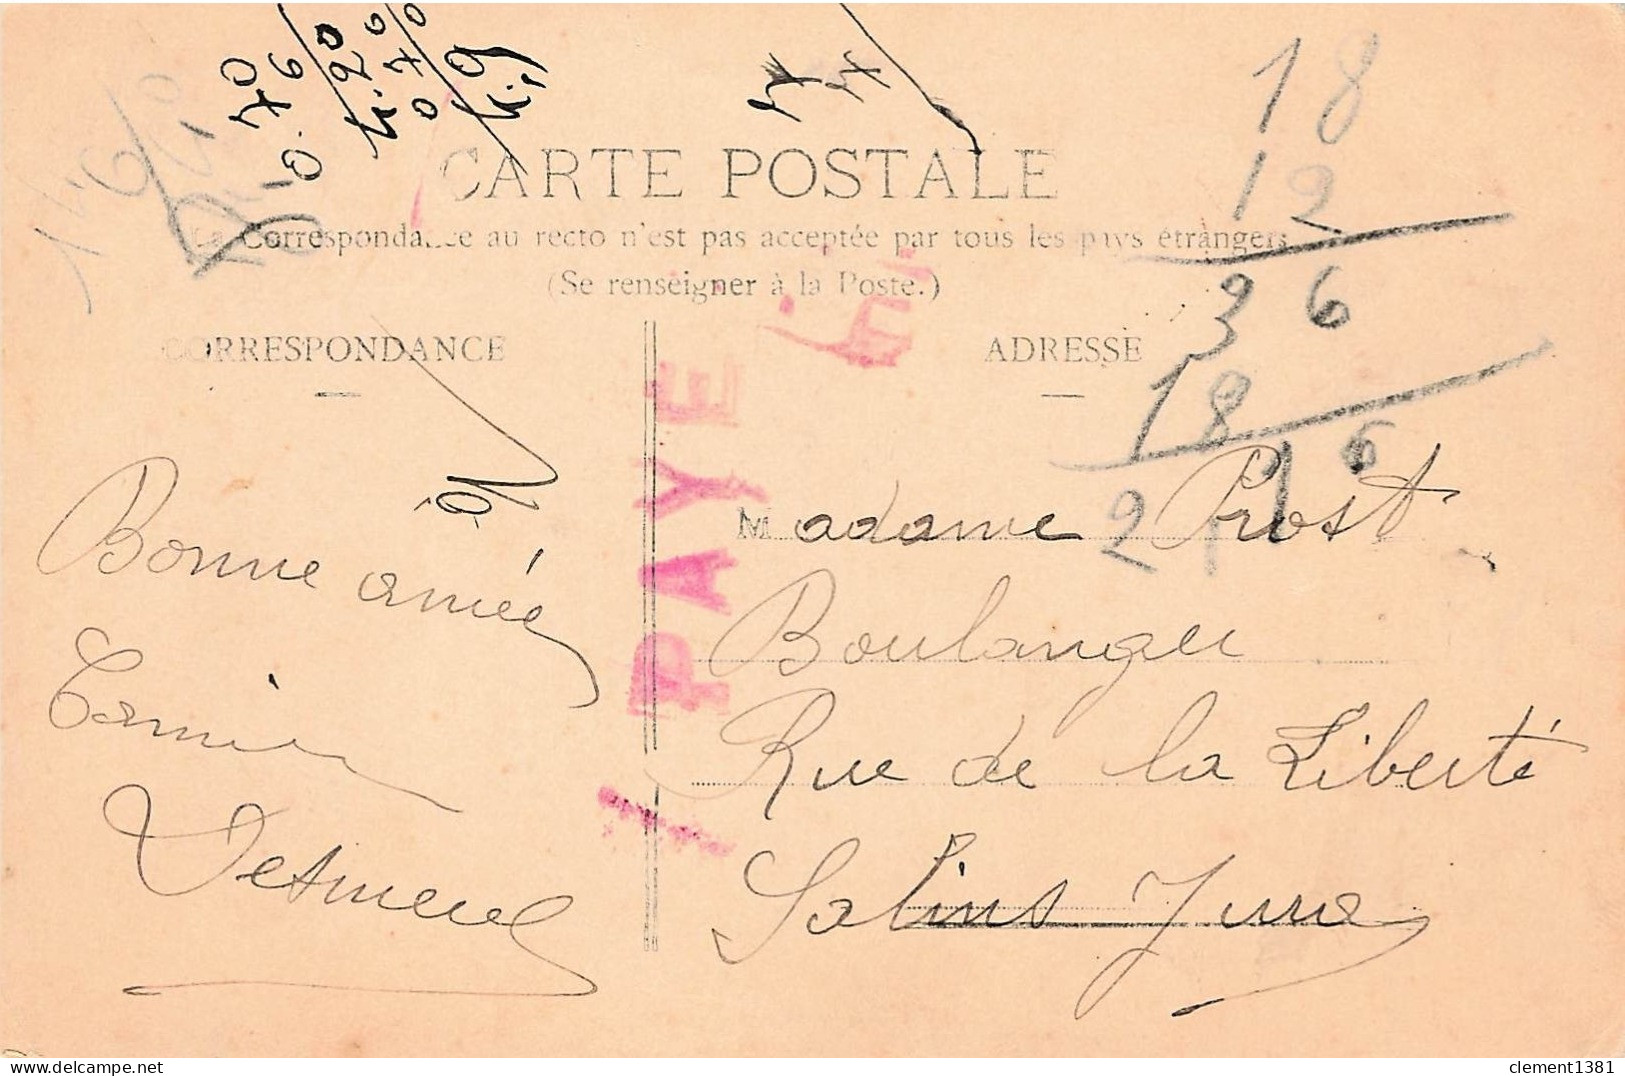 CARTE POSTALE
La Correspondance au recto n'est pas acceptée par tous les pays étrangers
(Se renseigner à la Poste.)
CORRESPONDANCE
ADRESSE
Bonne année
PAYE
Madame Prost
Boulanger
Rue de la Liberté
Salins Jura
18
12
36
18
216
0.70
6
4.20
0 70
4.9
delcampe.net
clement1381